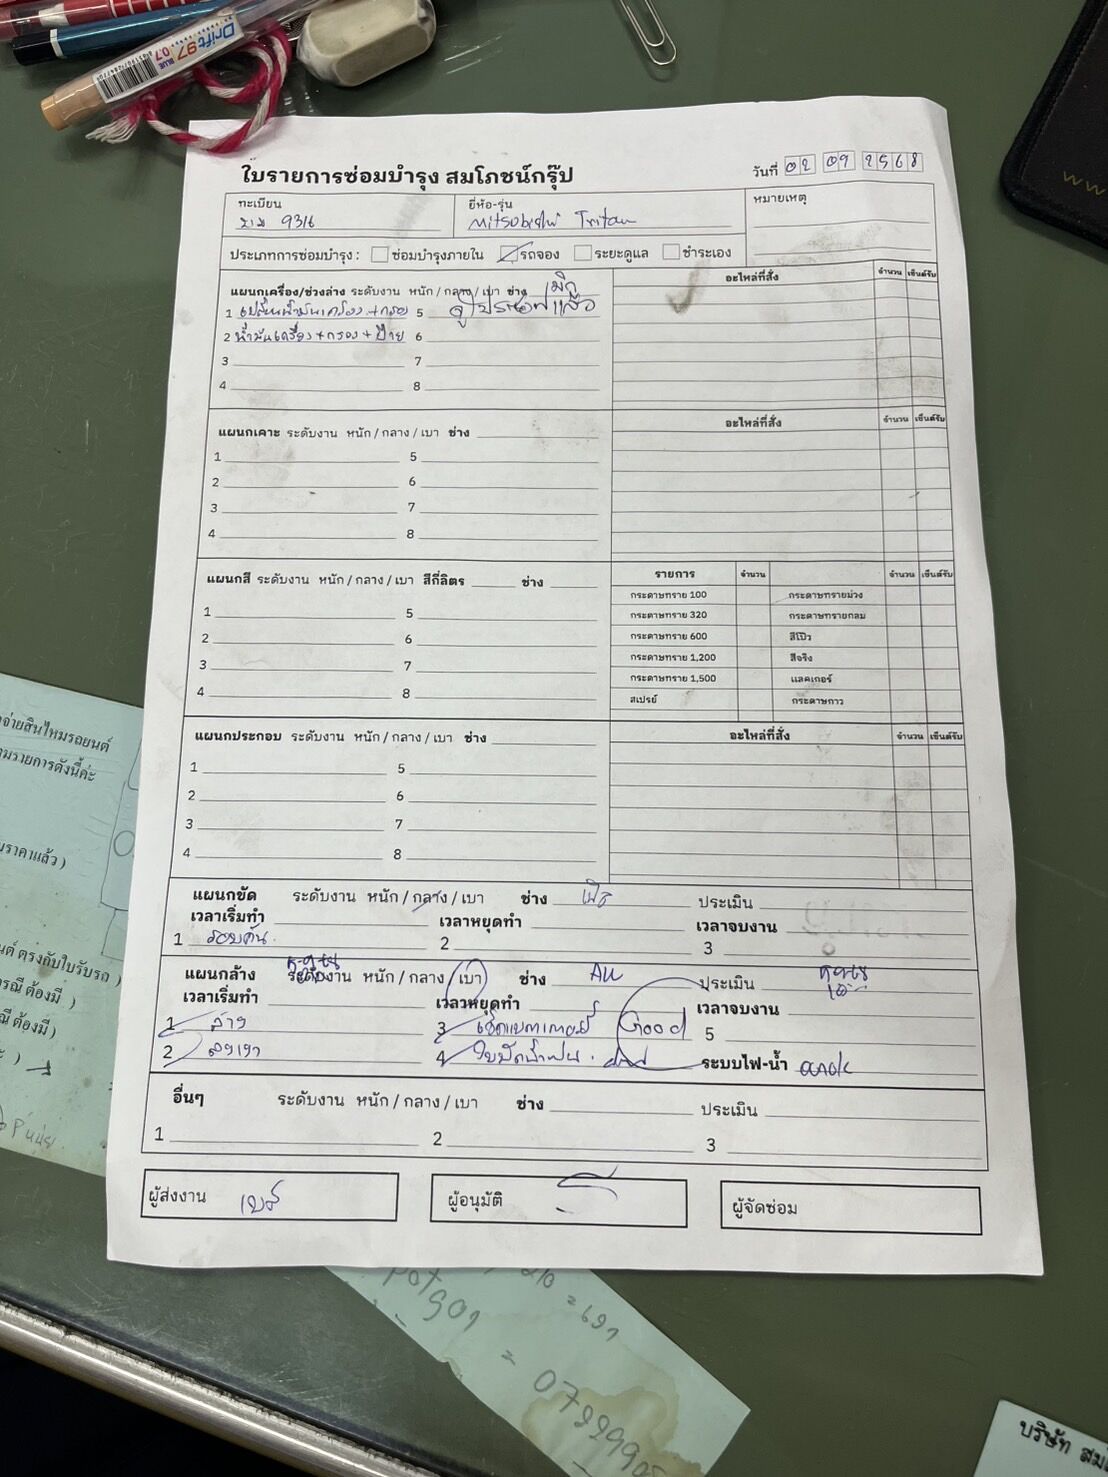 Drift 97 0.7
BLUE
ใบรายการซ่อมบำรุง สมโภชน์กรุ๊ป
วันที่ 02 09 2568
ทะเบียน
9316
ยี่ห้อ-รุ่น
Mitsubishi Triton
หมายเหตุ
ประเภทการซ่อมบำรุง : ซ่อมบำรุงภายใน รถจอง ระยะดูแล ชำระเอง
แผนกเครื่อง/ช่วงล่าง ระดับงาน หนัก / กลาง / เบา ช่าง
อะไหล่ที่สั่ง จำนวน เซ็นต์รับ
1 เปลี่ยนน้ำมันเครื่อง+กรอง 5
2 น้ำมันเครื่อง+กรอง+ป้าย 6
3 7
4 8
แผนกเคาะ ระดับงาน หนัก / กลาง / เบา ช่าง
อะไหล่ที่สั่ง จำนวน เซ็นต์รับ
1 5
2 6
3 7
4 8
แผนกสี ระดับงาน หนัก / กลาง / เบา สีกี่ลิตร ช่าง
รายการ จำนวน จำนวน เซ็นต์รับ
กระดาษทราย 100 กระดาษทรายม่วง
กระดาษทราย 320 กระดาษทรายกลม
กระดาษทราย 600 สีโป๊ว
กระดาษทราย 1,200 สีจริง
กระดาษทราย 1,500 แลคเกอร์
สเปรย์ กระดาษกาว
1 5
2 6
3 7
4 8
แผนกประกอบ ระดับงาน หนัก / กลาง / เบา ช่าง
อะไหล่ที่สั่ง จำนวน เซ็นต์รับ
1 5
2 6
3 7
4 8
แผนกขัด ระดับงาน หนัก / กลาง / เบา ช่าง ประเมิน
เวลาเริ่มทำ เวลาหยุดทำ เวลาจบงาน
1 รอบคัน 2 3
แผนกล้าง ระดับงาน หนัก / กลาง / เบา ช่าง ประเมิน
เวลาเริ่มทำ เวลาหยุดทำ เวลาจบงาน
1 ล้าง 3 เช็คแบตเตอรี่ Good 5
2 ลงเงา 4 ใบปัดน้ำฝน ระบบไฟ-น้ำ
อื่นๆ ระดับงาน หนัก / กลาง / เบา ช่าง ประเมิน
1 2 3
ผู้ส่งงาน
ผู้อนุมัติ
ผู้จัดซ่อม
จ่ายสินไหมรถยนต์
ามรายการดังนี้ค่ะ
ราคาแล้ว )
นต์ ตรงกับใบรับรถ )
ารณี ต้องมี )
ณี ต้องมี )
= 697
บริษัท สม